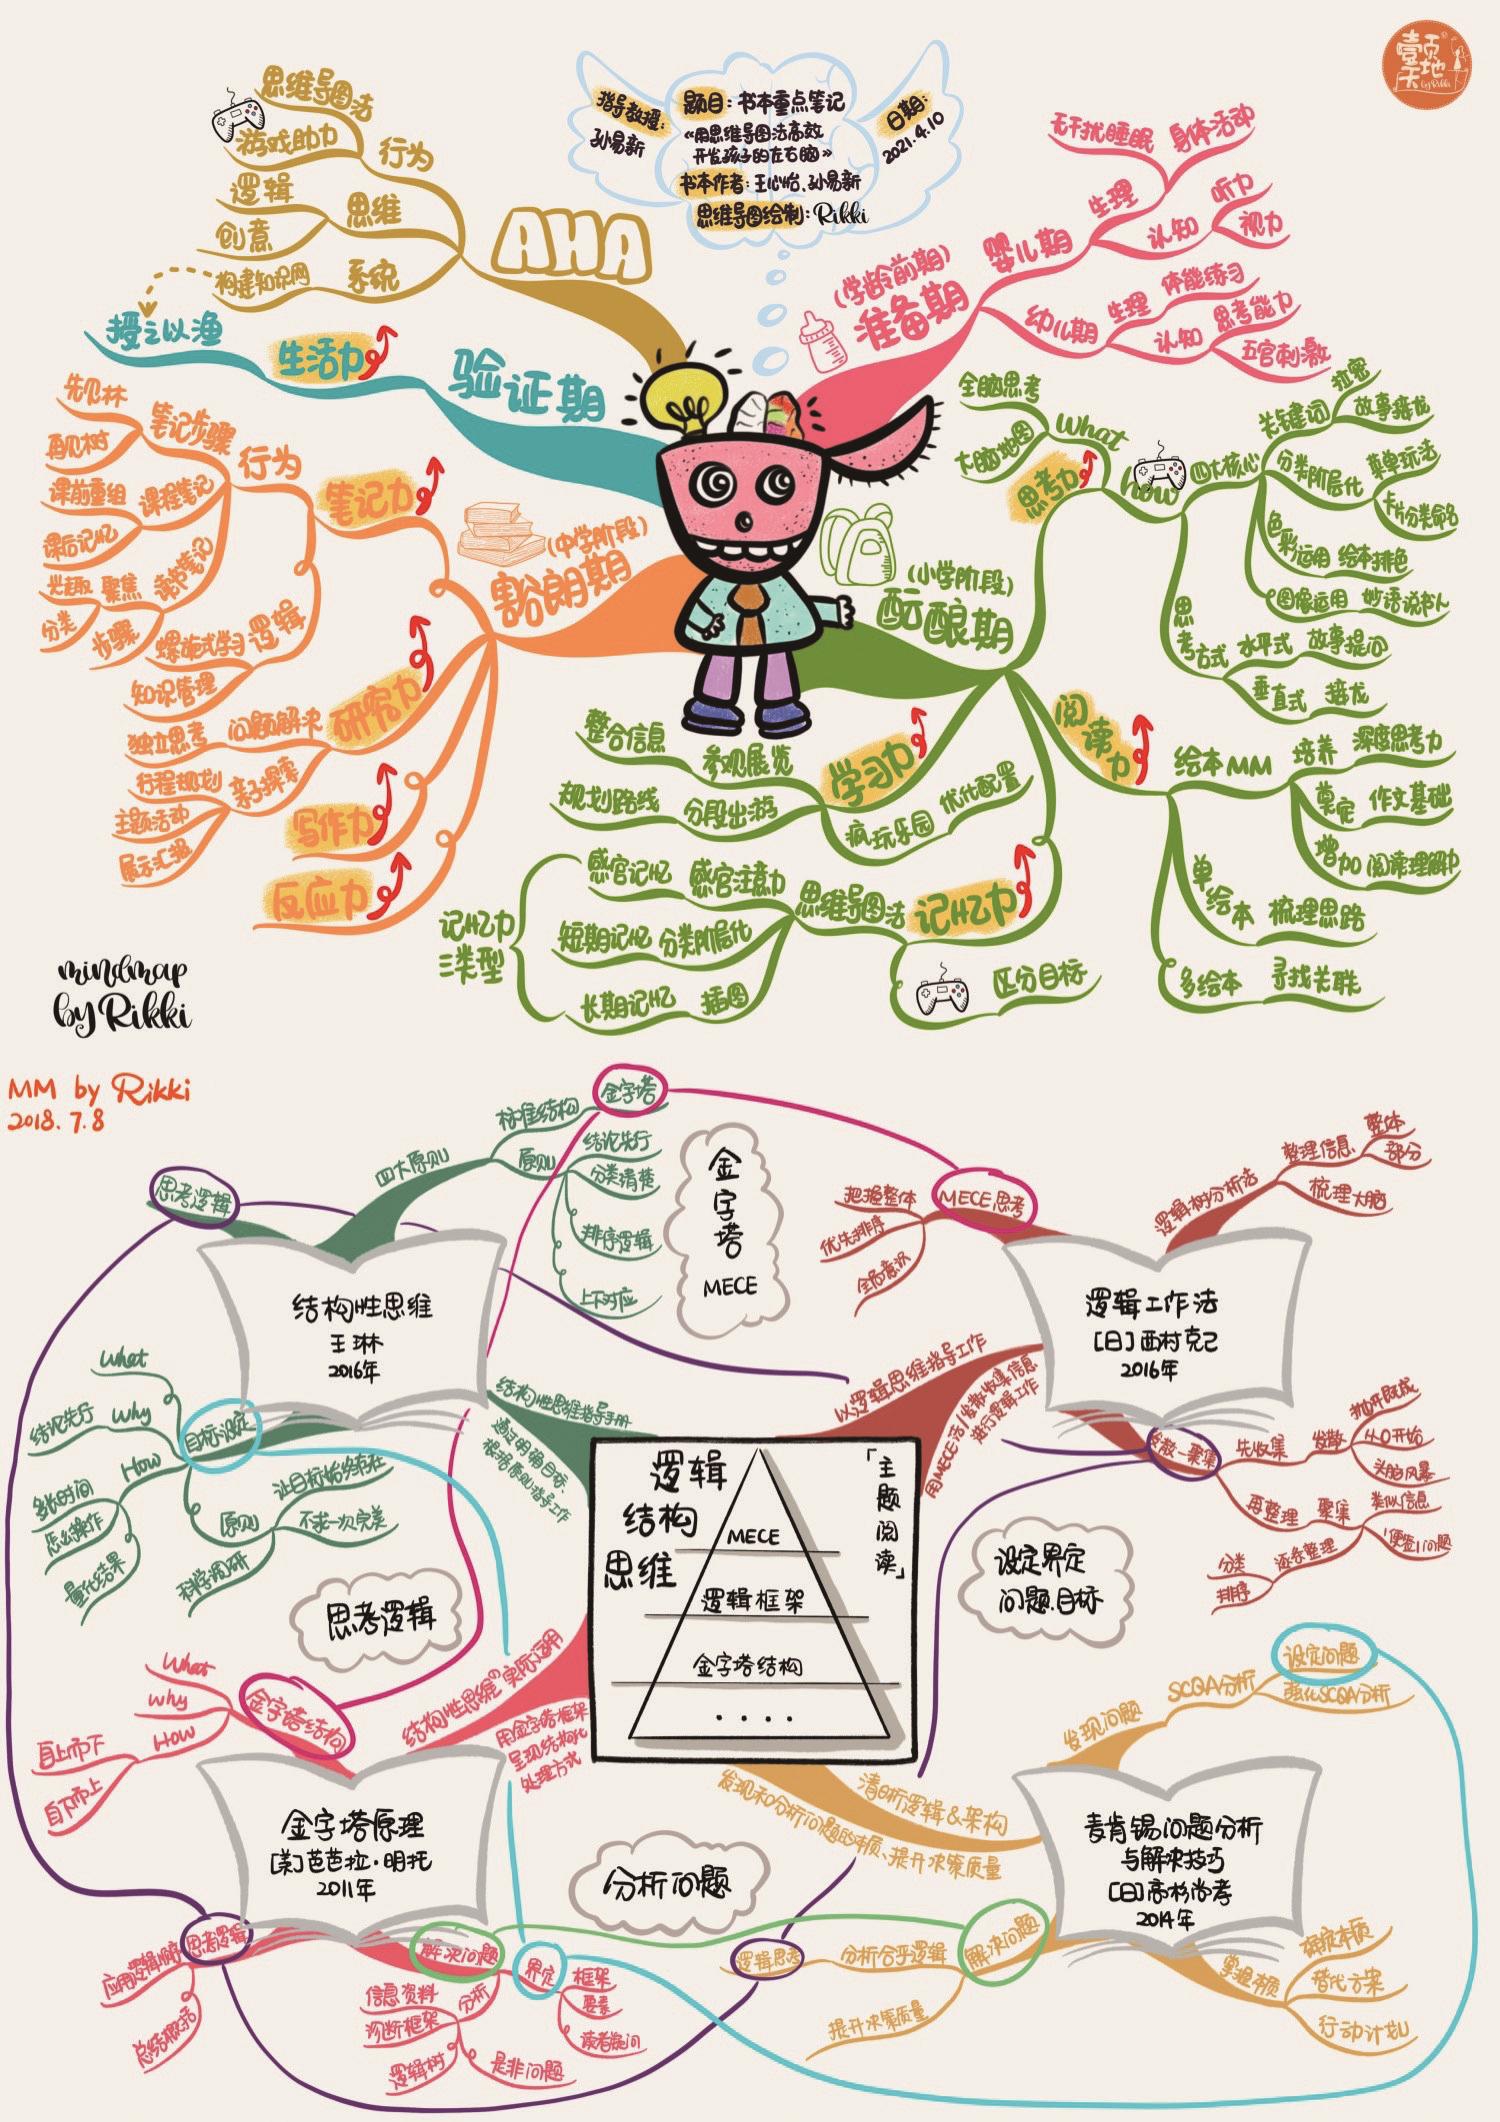 壹页
天地
by Rikki
指导教授:
孙易新
题目:书本重点笔记
《用思维导图法高效
开发孩子的左右脑》
书本作者:王心怡、孙易新
思维导图绘制:Rikki
日期:
2021.4.10
AHA
行为
思维导图法
游戏助力
思维
逻辑
创意
系统
构建知识网
验证期
生活力
授之以渔
(学龄前期)
准备期
婴儿期
生理
无干扰睡眠
身体活动
认知
听力
视力
幼儿期
生理
体能练习
认知
思考能力
五官刺激
(小学阶段)
酝酿期
思考力
what
全脑思考
大脑地图
how
四大核心
关键词
拉密
故事接龙
分类阶层化
菜单玩法
卡片分类命名
色彩运用
绘本排色
图像运用
妙语说书人
思考方式
水平式
故事提问
垂直式
接龙
阅读力
绘本MM
培养
深度思考力
奠定
作文基础
增加
阅读理解力
单绘本
梳理思路
多绘本
寻找关联
学习力
参观展览
整合信息
分段出游
规划路线
疯玩乐园
优化配置
记忆力
思维导图法
感官注意力
感官记忆
分类阶层化
短期记忆
插图
长期记忆
记忆力
三类型
区分目标
(中学阶段)
豁然开朗期
笔记力
行为
笔记步骤
先见林
再见树
课程笔记
课前重组
课后记忆
读书笔记
聚焦
兴趣
分类
步骤
逻辑
螺旋式学习
知识管理
研究力
问题解决
独立思考
亲子探索
行程规划
主题活动
展示汇报
写作力
反应力
mindmap
by Rikki
MM by Rikki
2018.7.8
逻辑
结构
思维
「主题阅读」
MECE
逻辑框架
金字塔结构
....
结构性思维
王琳
2016年
结构性思维指导手册
通过明确目标、
根据原则指导工作
思考逻辑
四大原则
标准结构
金字塔
原则
结论先行
分类清楚
排序逻辑
上下对应
目标设定
What
Why
结论先行
How
多长时间
怎么操作
量化结果
原则
让目标始终存在
不求一次完美
科学调研
金字塔
MECE
逻辑工作法
[日]西村克己
2016年
以逻辑思维指导工作
用MECE法/发散收集信息
进行逻辑工作
MECE思考
把握整体
优先排序
全局意识
逻辑树分析法
整理信息
整体
部分
梳理大脑
发散—聚集
先收集
发散
抛开既成
从0开始
头脑风暴
再整理
聚集
类似信息
1便签1问题
逐条整理
分类
排序
设定界定
问题.目标
思考逻辑
金字塔原理
[美]芭芭拉·明托
2011年
结构性思维的实际运用
用金字塔框架
呈现结构化
处理方式
金字塔结构
What
Why
How
自上而下
自下而上
思考逻辑
应用逻辑顺序
总结概括
解决问题
分析
信息资料
诊断框架
逻辑树
是非问题
界定
框架
要素
读者疑问
分析问题
麦肯锡问题分析
与解决技巧
[日]高杉尚孝
2014年
清晰逻辑&架构
发现和分析问题的本质、提升决策质量
发现问题
SCQA分析
设定问题
强化SCQA分析
解决问题
分析合乎逻辑
逻辑思考
提升决策质量
掌握本质
确定本质
替代方案
行动计划